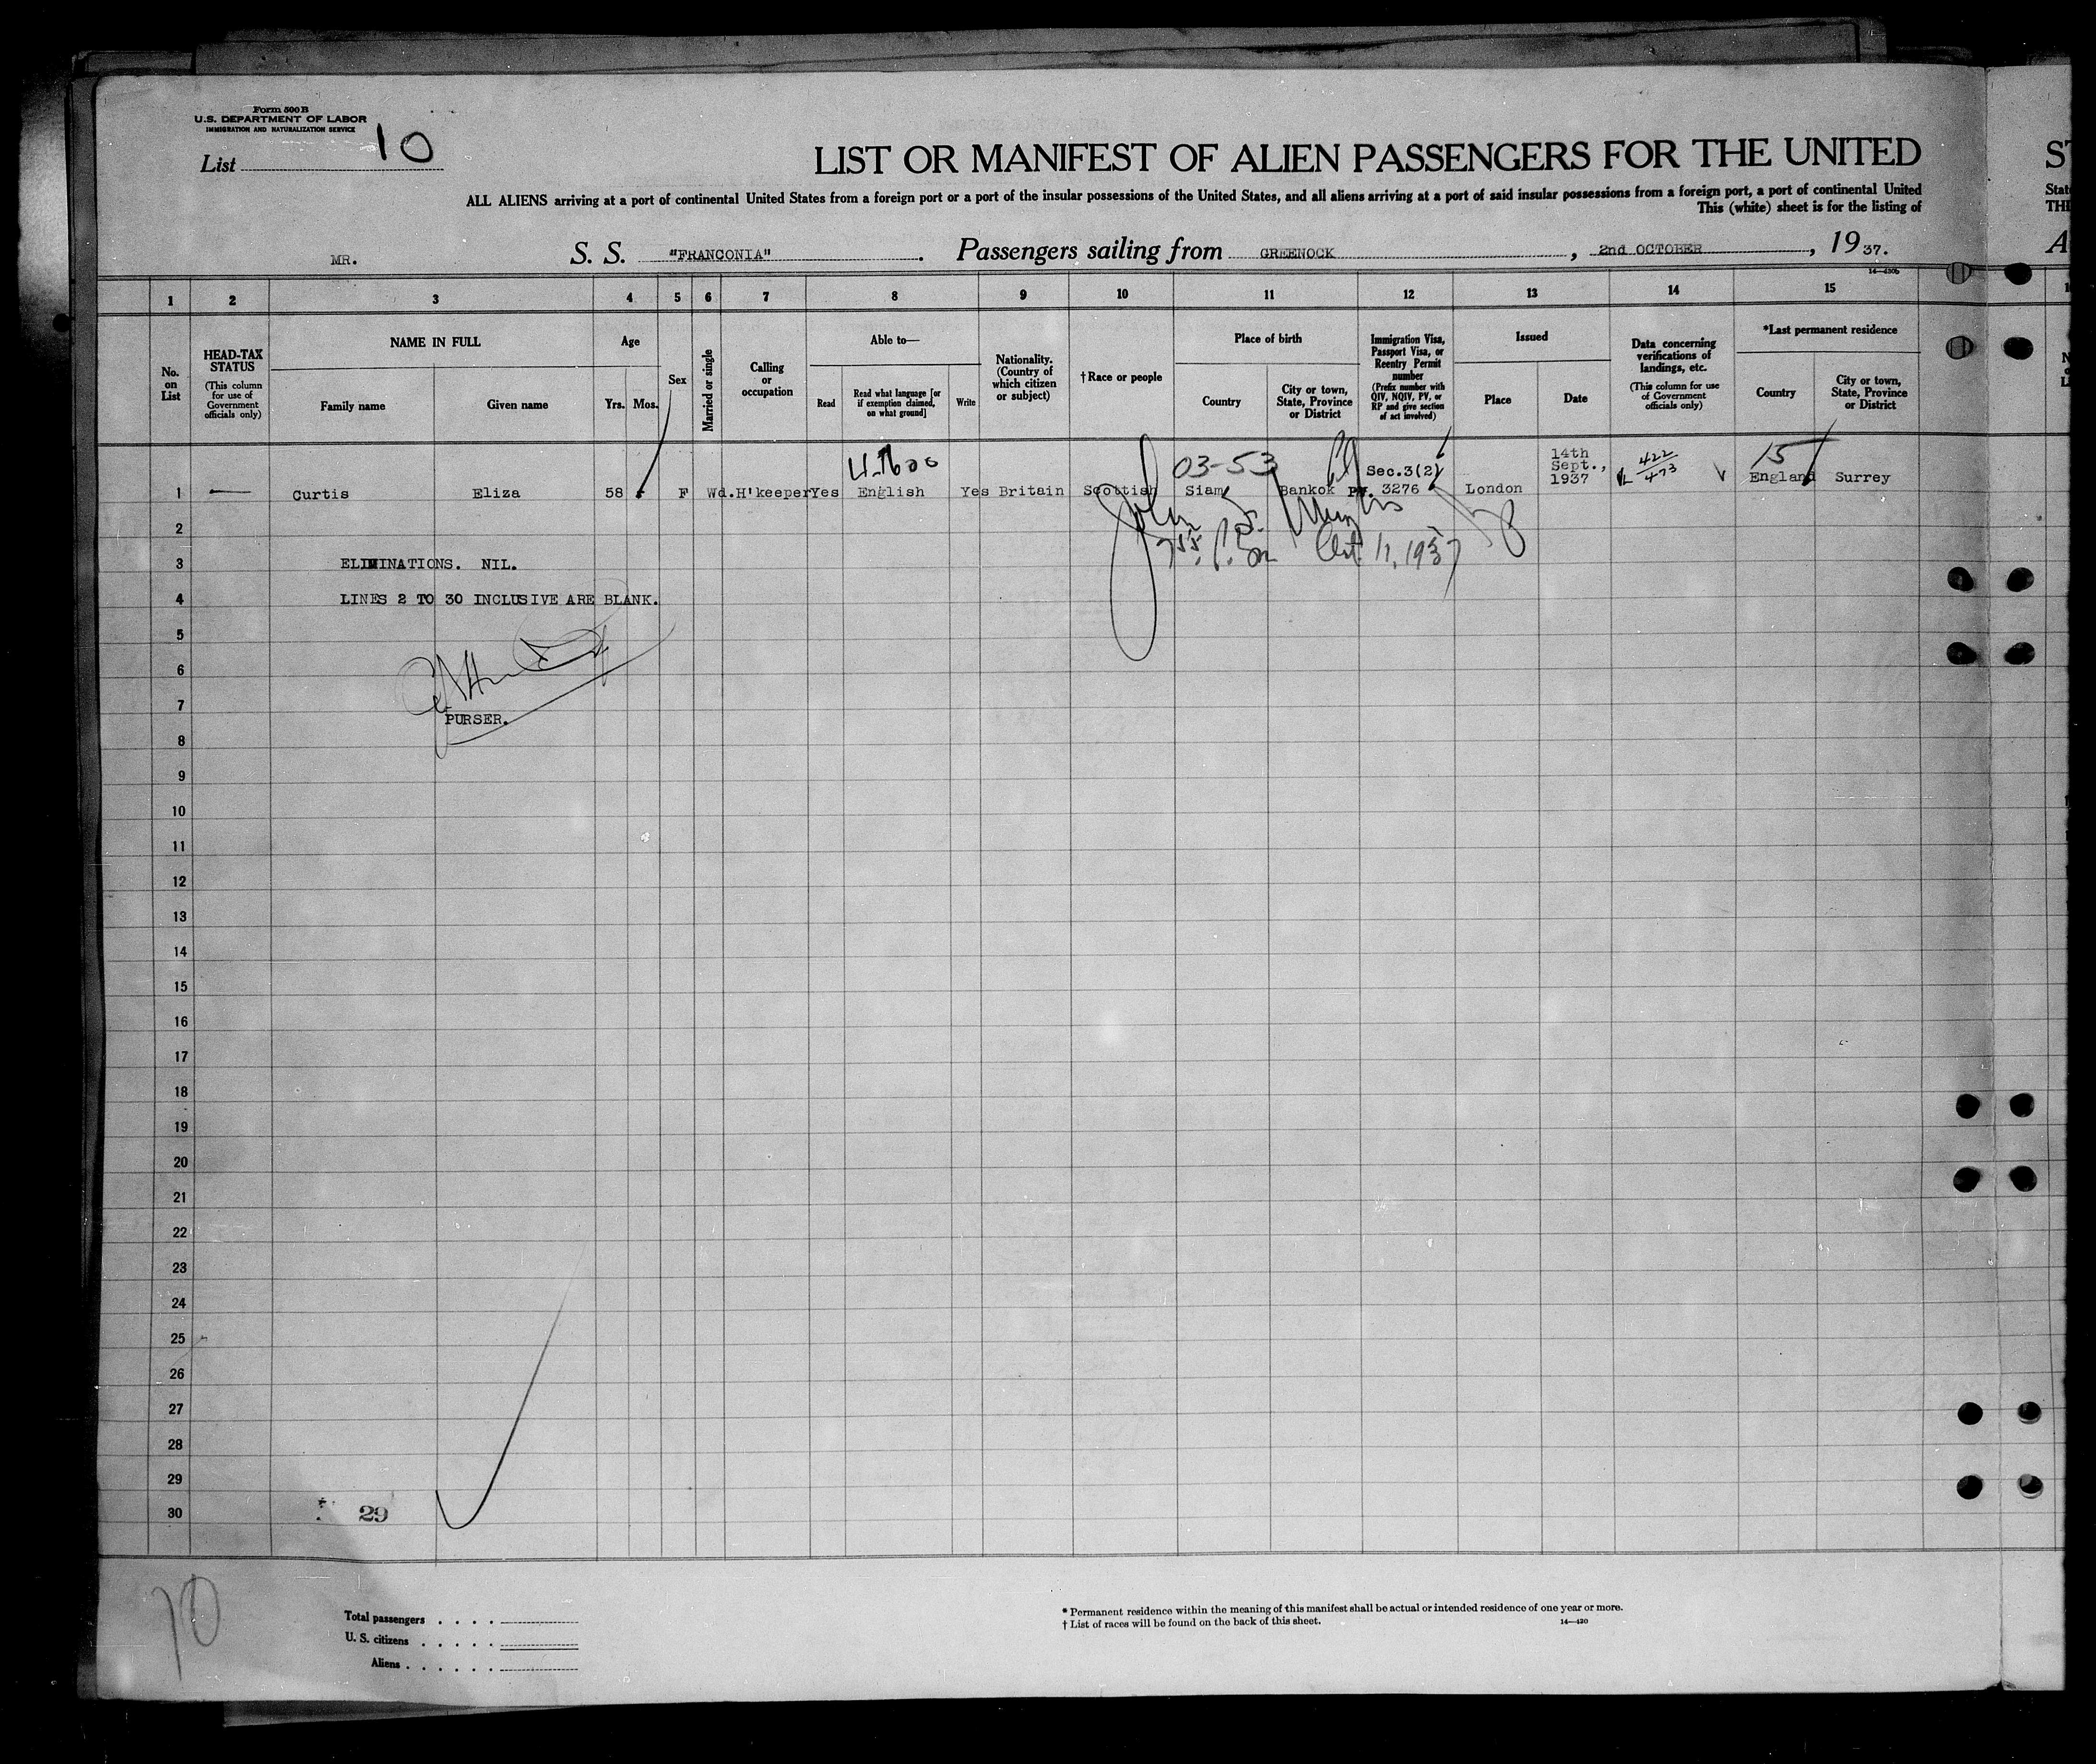 Form 500 B
U.S. DEPARTMENT OF LABOR
IMMIGRATION AND NATURALIZATION SERVICE
List 10
LIST OR MANIFEST OF ALIEN PASSENGERS FOR THE UNITED
ST
ALL ALIENS arriving at a port of continental United States from a foreign port or a port of the insular possessions of the United States, and all aliens arriving at a port of said insular possessions from a foreign port, a port of continental United
Stat
This (white) sheet is for the listing of
THI
MR. S. S. "FRANCONIA". Passengers sailing from GREENOCK, 2nd OCTOBER, 1937.
A
14—430b
1 2 3 4 5 6 7 8 9 10 11 12 13 14 15
No. on List
HEAD-TAX STATUS
(This column for use of Government officials only)
NAME IN FULL
Family name
Given name
Age
Yrs.
Mos.
Sex
Married or single
Calling or occupation
Able to—
Read
Read what language [or if exemption claimed, on what ground]
Write
Nationality. (Country of which citizen or subject)
† Race or people
Place of birth
Country
City or town, State, Province or District
Immigration Visa, Passport Visa, or Reentry Permit number
(Prefix number with QIV, NQIV, PV, or RP and give section of act involved)
Issued
Place
Date
Data concerning verifications of landings, etc.
(This column for use of Government officials only)
*Last permanent residence
Country
City or town, State, Province or District
03-53 Sec.3(2) 14th Sept., 1937 422 473 15
1 — Curtis Eliza 58 F Wd. H'keeper Yes English Yes Britain Scottish Siam Bankok PV. 3276 London England Surrey
2
John S.
Oct 11, 1937
3 ELIMINATIONS. NIL.
4 LINES 2 TO 30 INCLUSIVE ARE BLANK.
5
6
7
PURSER.
8
9
10
11
12
13
14
15
16
17
18
19
20
21
22
23
24
25
26
27
28
29
30 29
10
Total passengers
U. S. citizens
Aliens
* Permanent residence within the meaning of this manifest shall be actual or intended residence of one year or more.
† List of races will be found on the back of this sheet.
14—430